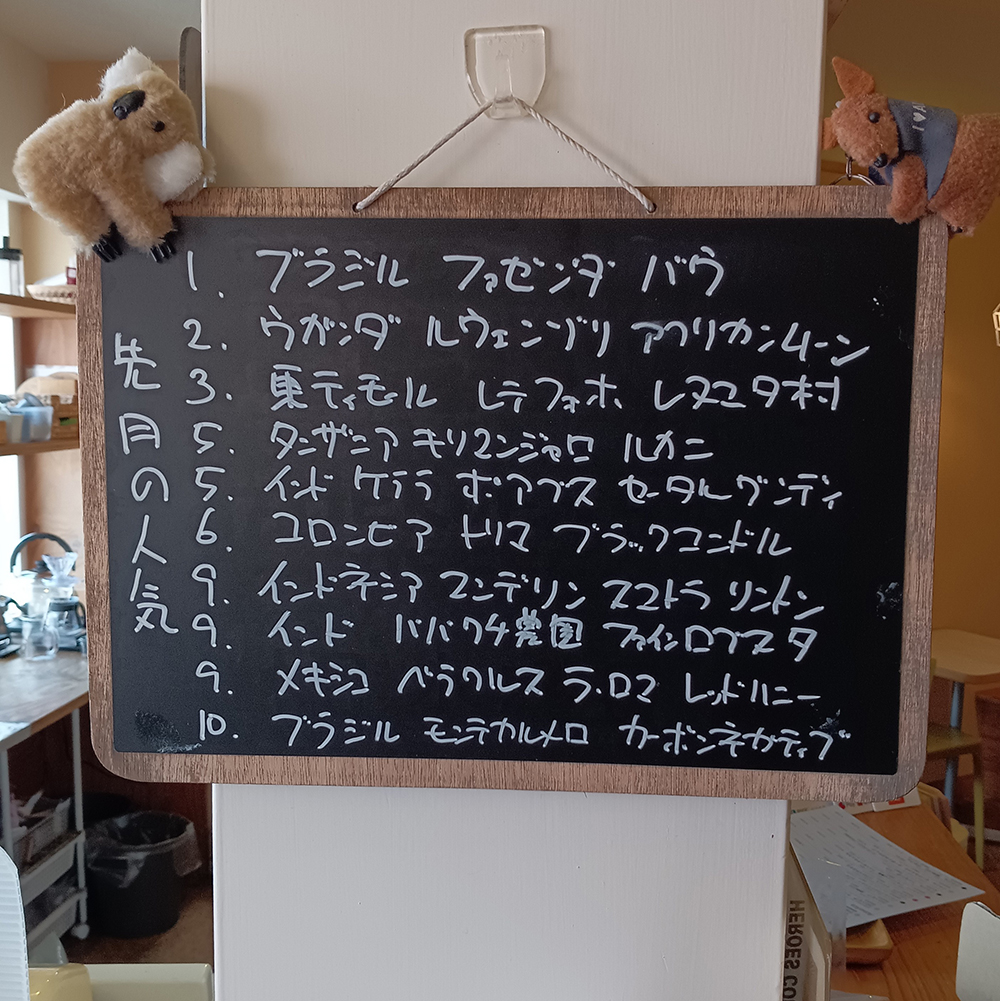 先月の人気
1. ブラジル ファゼンダ バウ
2. ウガンダ ルウェンゾリ アフリカンムーン
3.東ティモール レテフォホ レヌユタ村
5. タンザニア キリマンジャロ ルカニ
5. インド ケララ ポアブス セータルグンディ
6. コロンビア トリマ ブラックコンドル
9. インドネシア マンデリン スマトラ リントン
9. インド ババクチ農園 ファインロブスタ
9. メキシコ ベラクルス ラ・ロマ レッドハニー
10. ブラジル モンテカルメロ カーボンネガティブ
HEROES CO